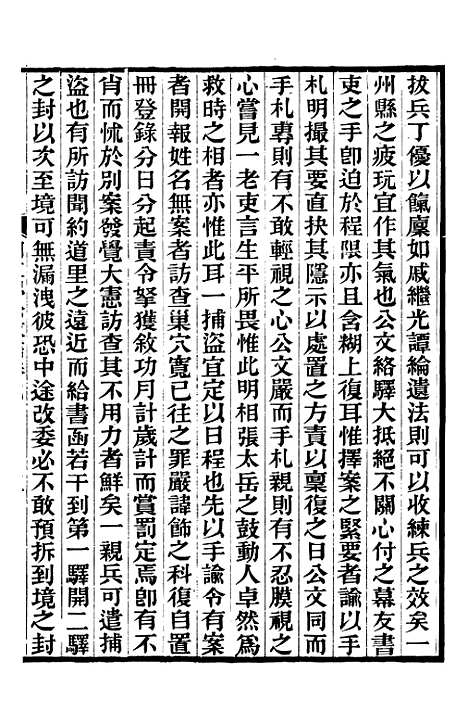 拔兵丁優以餼廩如戚繼光譚綸遺法則可以收練兵之效矣一
州縣之疲玩宜作其氣也公文絡驛大抵絕不關心付之幕友書
吏之手卽迫於程限亦且含糊上復耳惟擇案之緊要者諭以手
札明撮其要直抉其隱示以處置之方責以稟復之日公文同而
手札專則有不敢輕視之心公文嚴而手札親則有不忍膜視之
心嘗見一老吏言生平所畏惟此明相張太岳之鼓動人卓然為
救時之相者亦惟此耳一捕盜宜定以日程也先以手諭令有案
者開報姓名無案者訪查巢穴寬已往之罪嚴諱飾之科復自置
冊登錄分日分起責令拏獲敘功月計歲計而賞罰定焉卽有不
肖而怵於別案發覺大憲訪查其不用力者鮮矣一親兵可遣捕
盜也有所訪聞約道里之遠近而給書函若干到第一驛開二驛
之封以次至境可無漏洩彼恐中途改委必不敢預拆到境之封